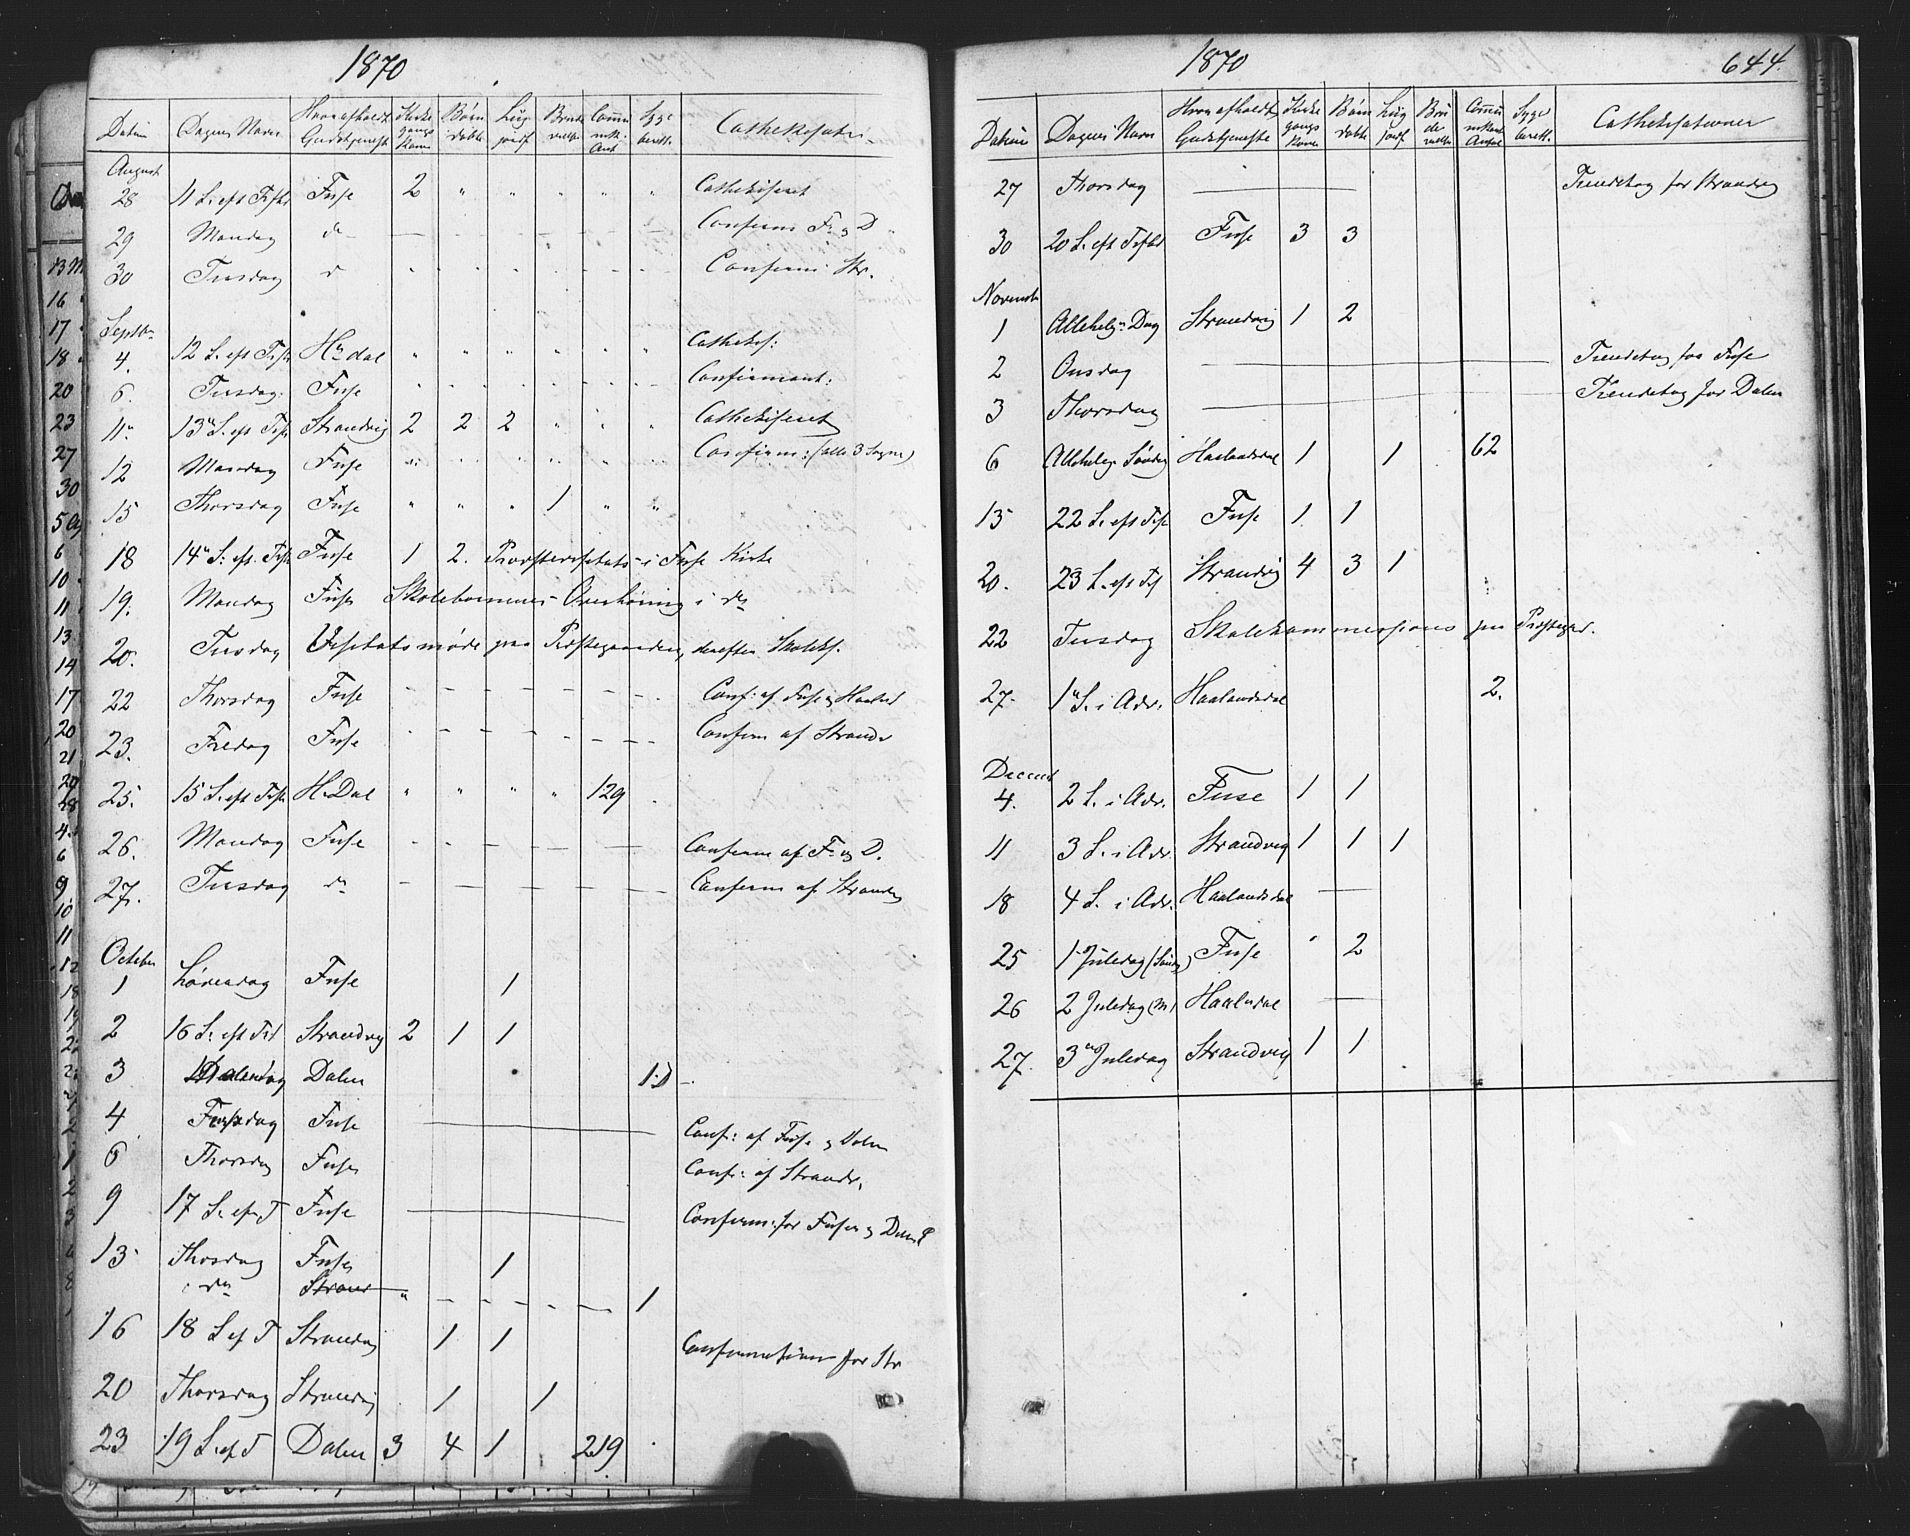 1870
Datum Dagens Navn Hvor afholdt Gudstjeneste Kirke gangs Koner Børn døbte Liig jordf. Brude vielse Commu nik. Ant Syge berett. Cathekisatio
August
28 11 S. eft Trft Fuse 2 " " " " " " Cathekiseret
29 Mandag do Confirm F. og D
30 Tirsdag d Confirm: Str.
Septbr
4. 12 S. eft Trft Hr dal " " " " " " Cathekes:
6. Tirsdag. Fuse Confirmant:
11" 13" S. eft Trft Strandvig 2 2 2 " " " Cathekiseret
12 Mandag Fuse Confirm: (alle 3 Sogne)
15 Thorsdag Fuse " " " 1 " "
18 14" S. eft. Trft Fuse 1 2. Provstevisitats i Fuse Kirke
19. Mandag Fuse Skolebørnenes Overhøring i do
20. Tirsdag Visitatsmøde paa Præstegaarden, derefter Skolek.
22 Thorsdag Fuse Conf: af Fuse og Haalsd
23. Fredag Fuse Confirm af Strandv
25. 15 S. eft Trft H. Dal " " " " 129
26. Mandag Fuse Confirm af F. og D.
27. Tirsdag do Confirm af Strandv
October
1 Løverdag Fuse 1
2 16 S. eft Trf Strandvig 2 1 1
3 Mandag Dalen 1. D
4 Tirsdag Fuse Conf: af Fuse og Dalen
6 Thorsdag Fuse Conf: af Strandv.
9 17 S. eft T Fuse Confirm: for Fuse og Dalen
13 Thorsdag Fuse 1
i do Strand " 1
16 18 S. ef T Strandvig 1 1 Confirmation for Str
20 Thorsdag Strandvig 1 1
23 19 S. ef T Dalen 3 4 1 219
1870 644.
Datum Dagens Navn Hvor afholdt Gudstjeneste Kirke gangs Koner Børn døbte Liig jordf Bru de vielse Commu nikant Antal Syge berett. Cathekisationer
27 Thorsdag Tiendetag for Strandvig
30 20 S. eft Trft Fuse 3 3
Novemb
1 Allehelg. Dag Strandvig 1 2
2 Onsdag Tiendetag for Fuse
3 Thorsdag Tiendetag for Dalen
6 Allehelg Søndag Haalandsdal 1 1 62
13 22 S. eft Trft Fuse 1 1
20. 23 S. eft Trf Strandvig 4 3 1
22 Tirsdag Skolekommission paa Præstegrd.
27. 1" S. i Adv. Haalandsdal 2.
Decemb
4. 2 S. i Adv. Fuse 1 1
11 3 S. i Adv. Strandvig 1 1 1
18 4 S. i Adv. Haalandsdal
25 1 Juledag (Sønd) Fuse " 2
26 2 Juledag (M) Haalsdal
27. 3" Juledag Strandvig 1 1